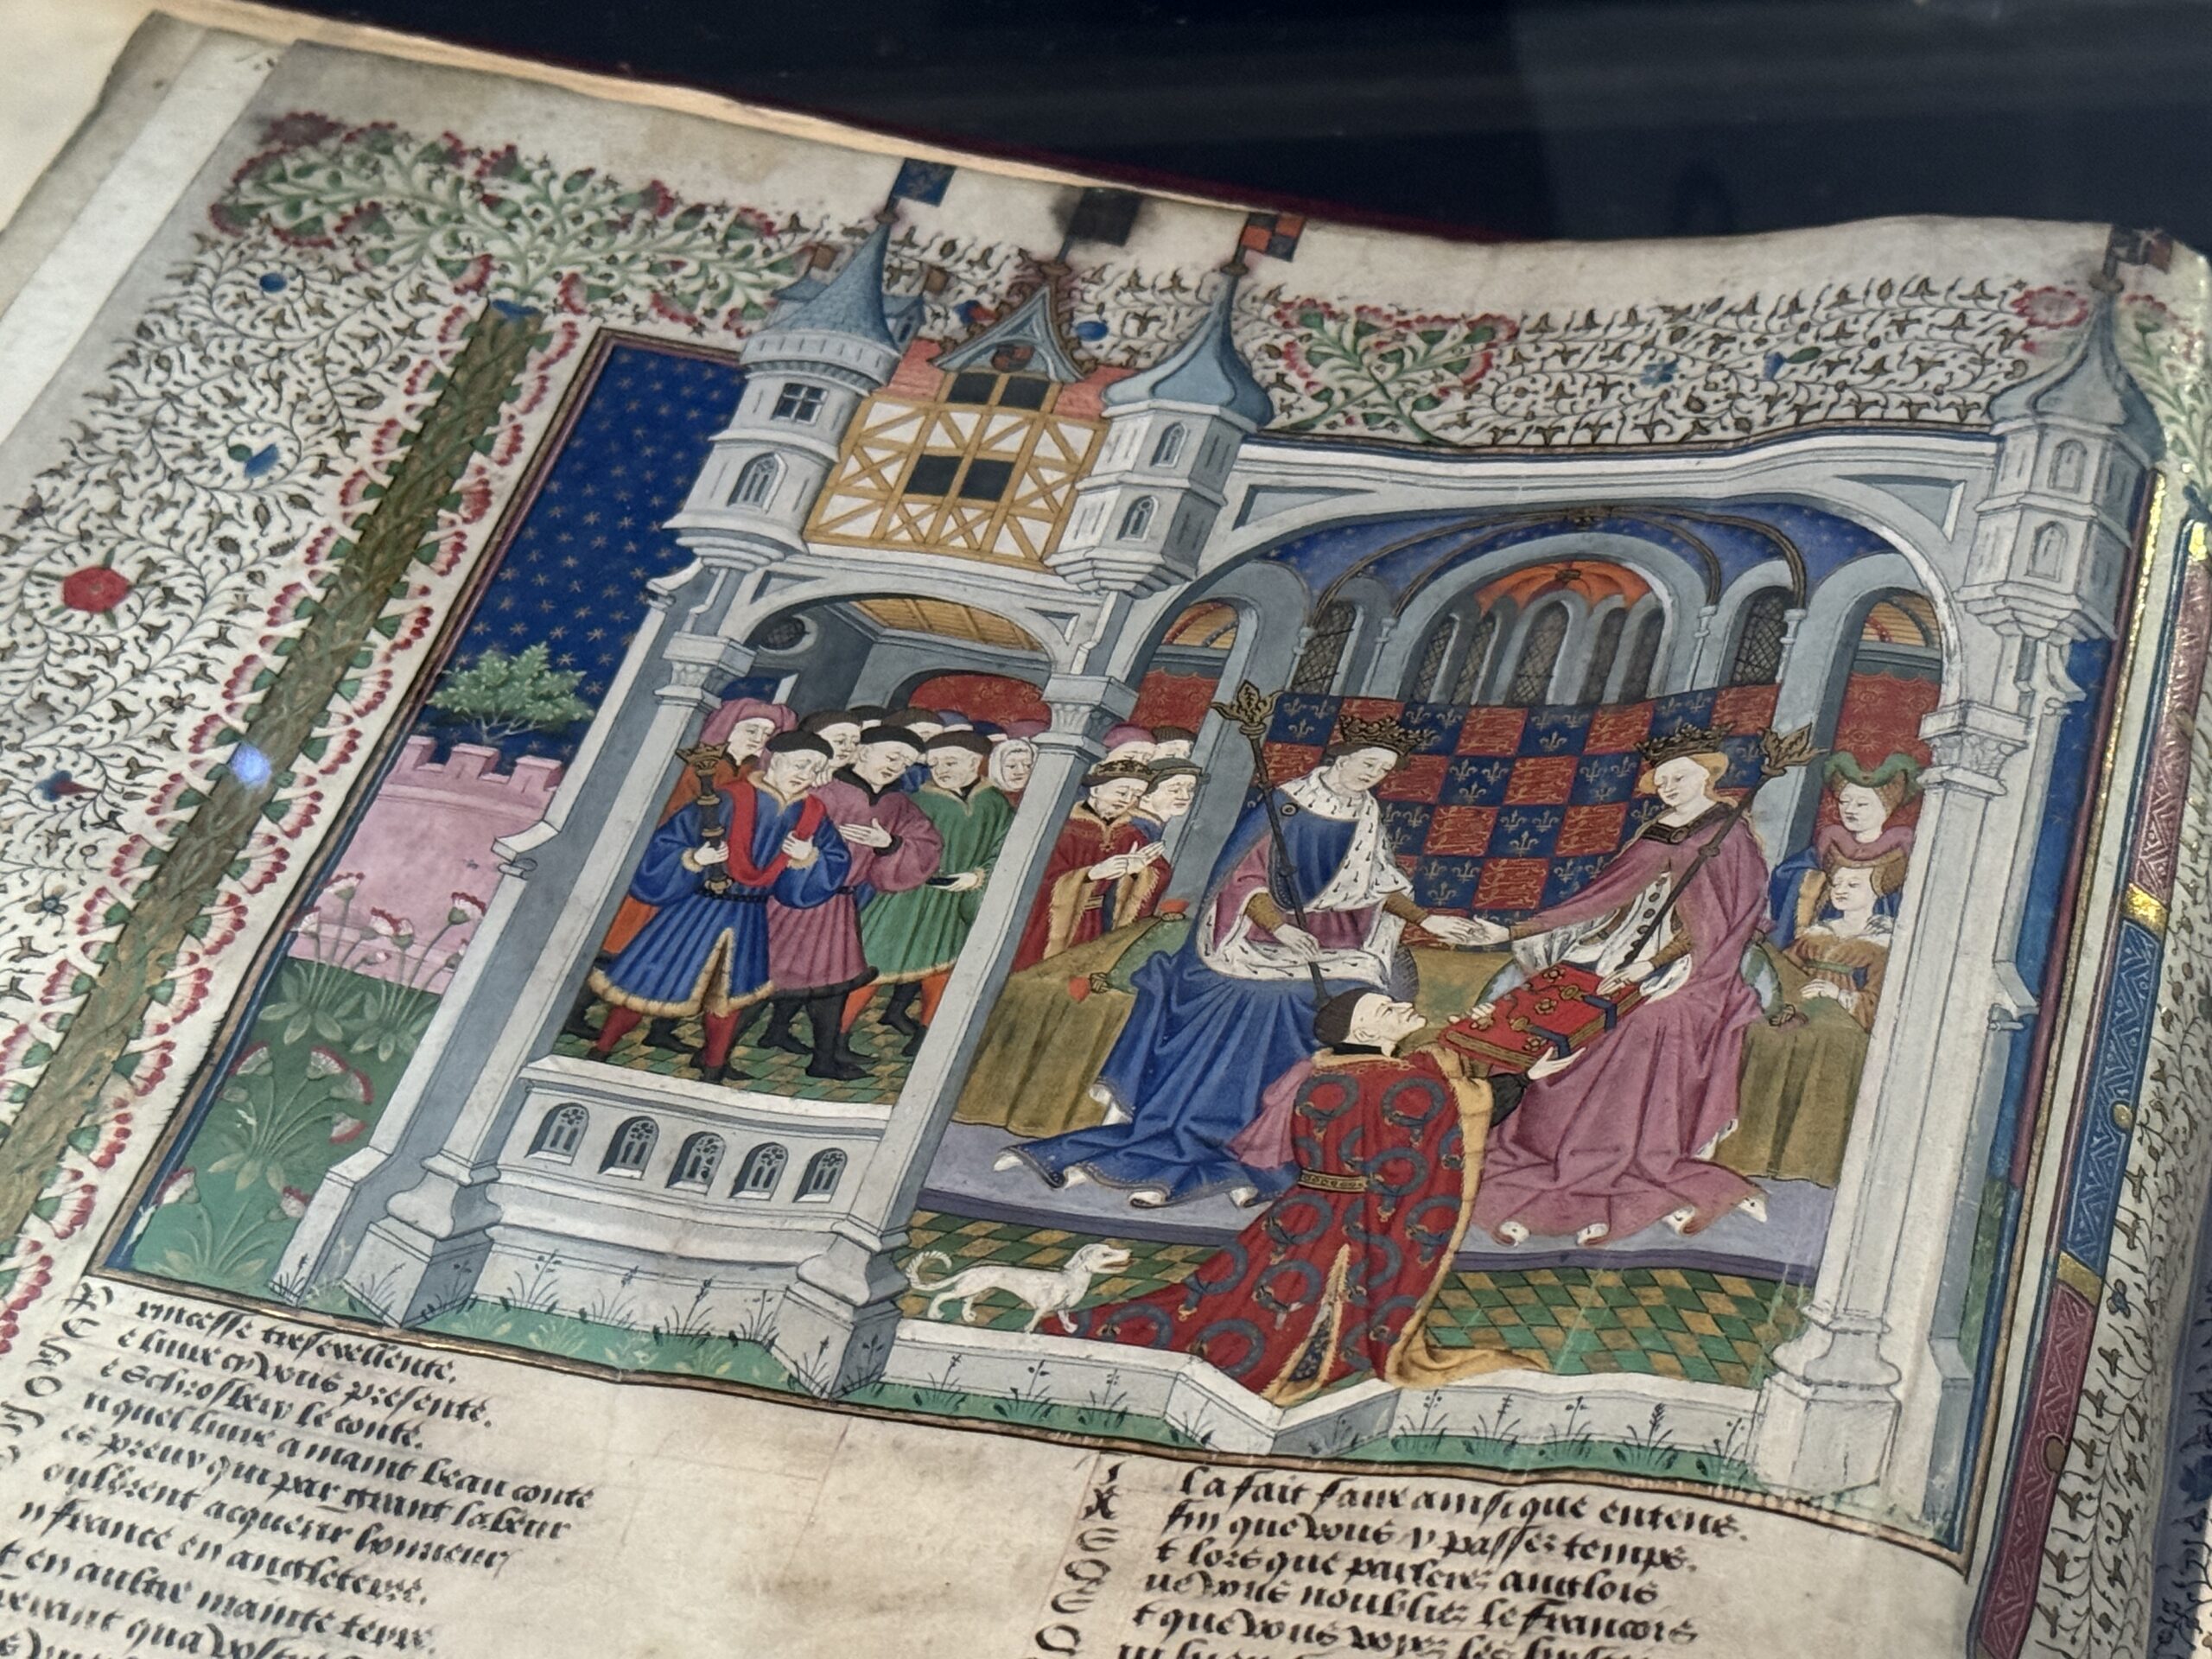 Princesse tresexcellente.
Ce livre cy vous presente.
De Schrosbery le conte.
Ou quel livre a maint beau conte
Des preux qui par grant labeur
Voulurent acquerir honneur
En france en angleterre.
Et en aultre mainte terre.
Il la fait faire ainsi que entens.
Afin que vous y passez temps.
Et lors que parlerez anglois
Que vous noubliez le francois
Et que vous voyez les